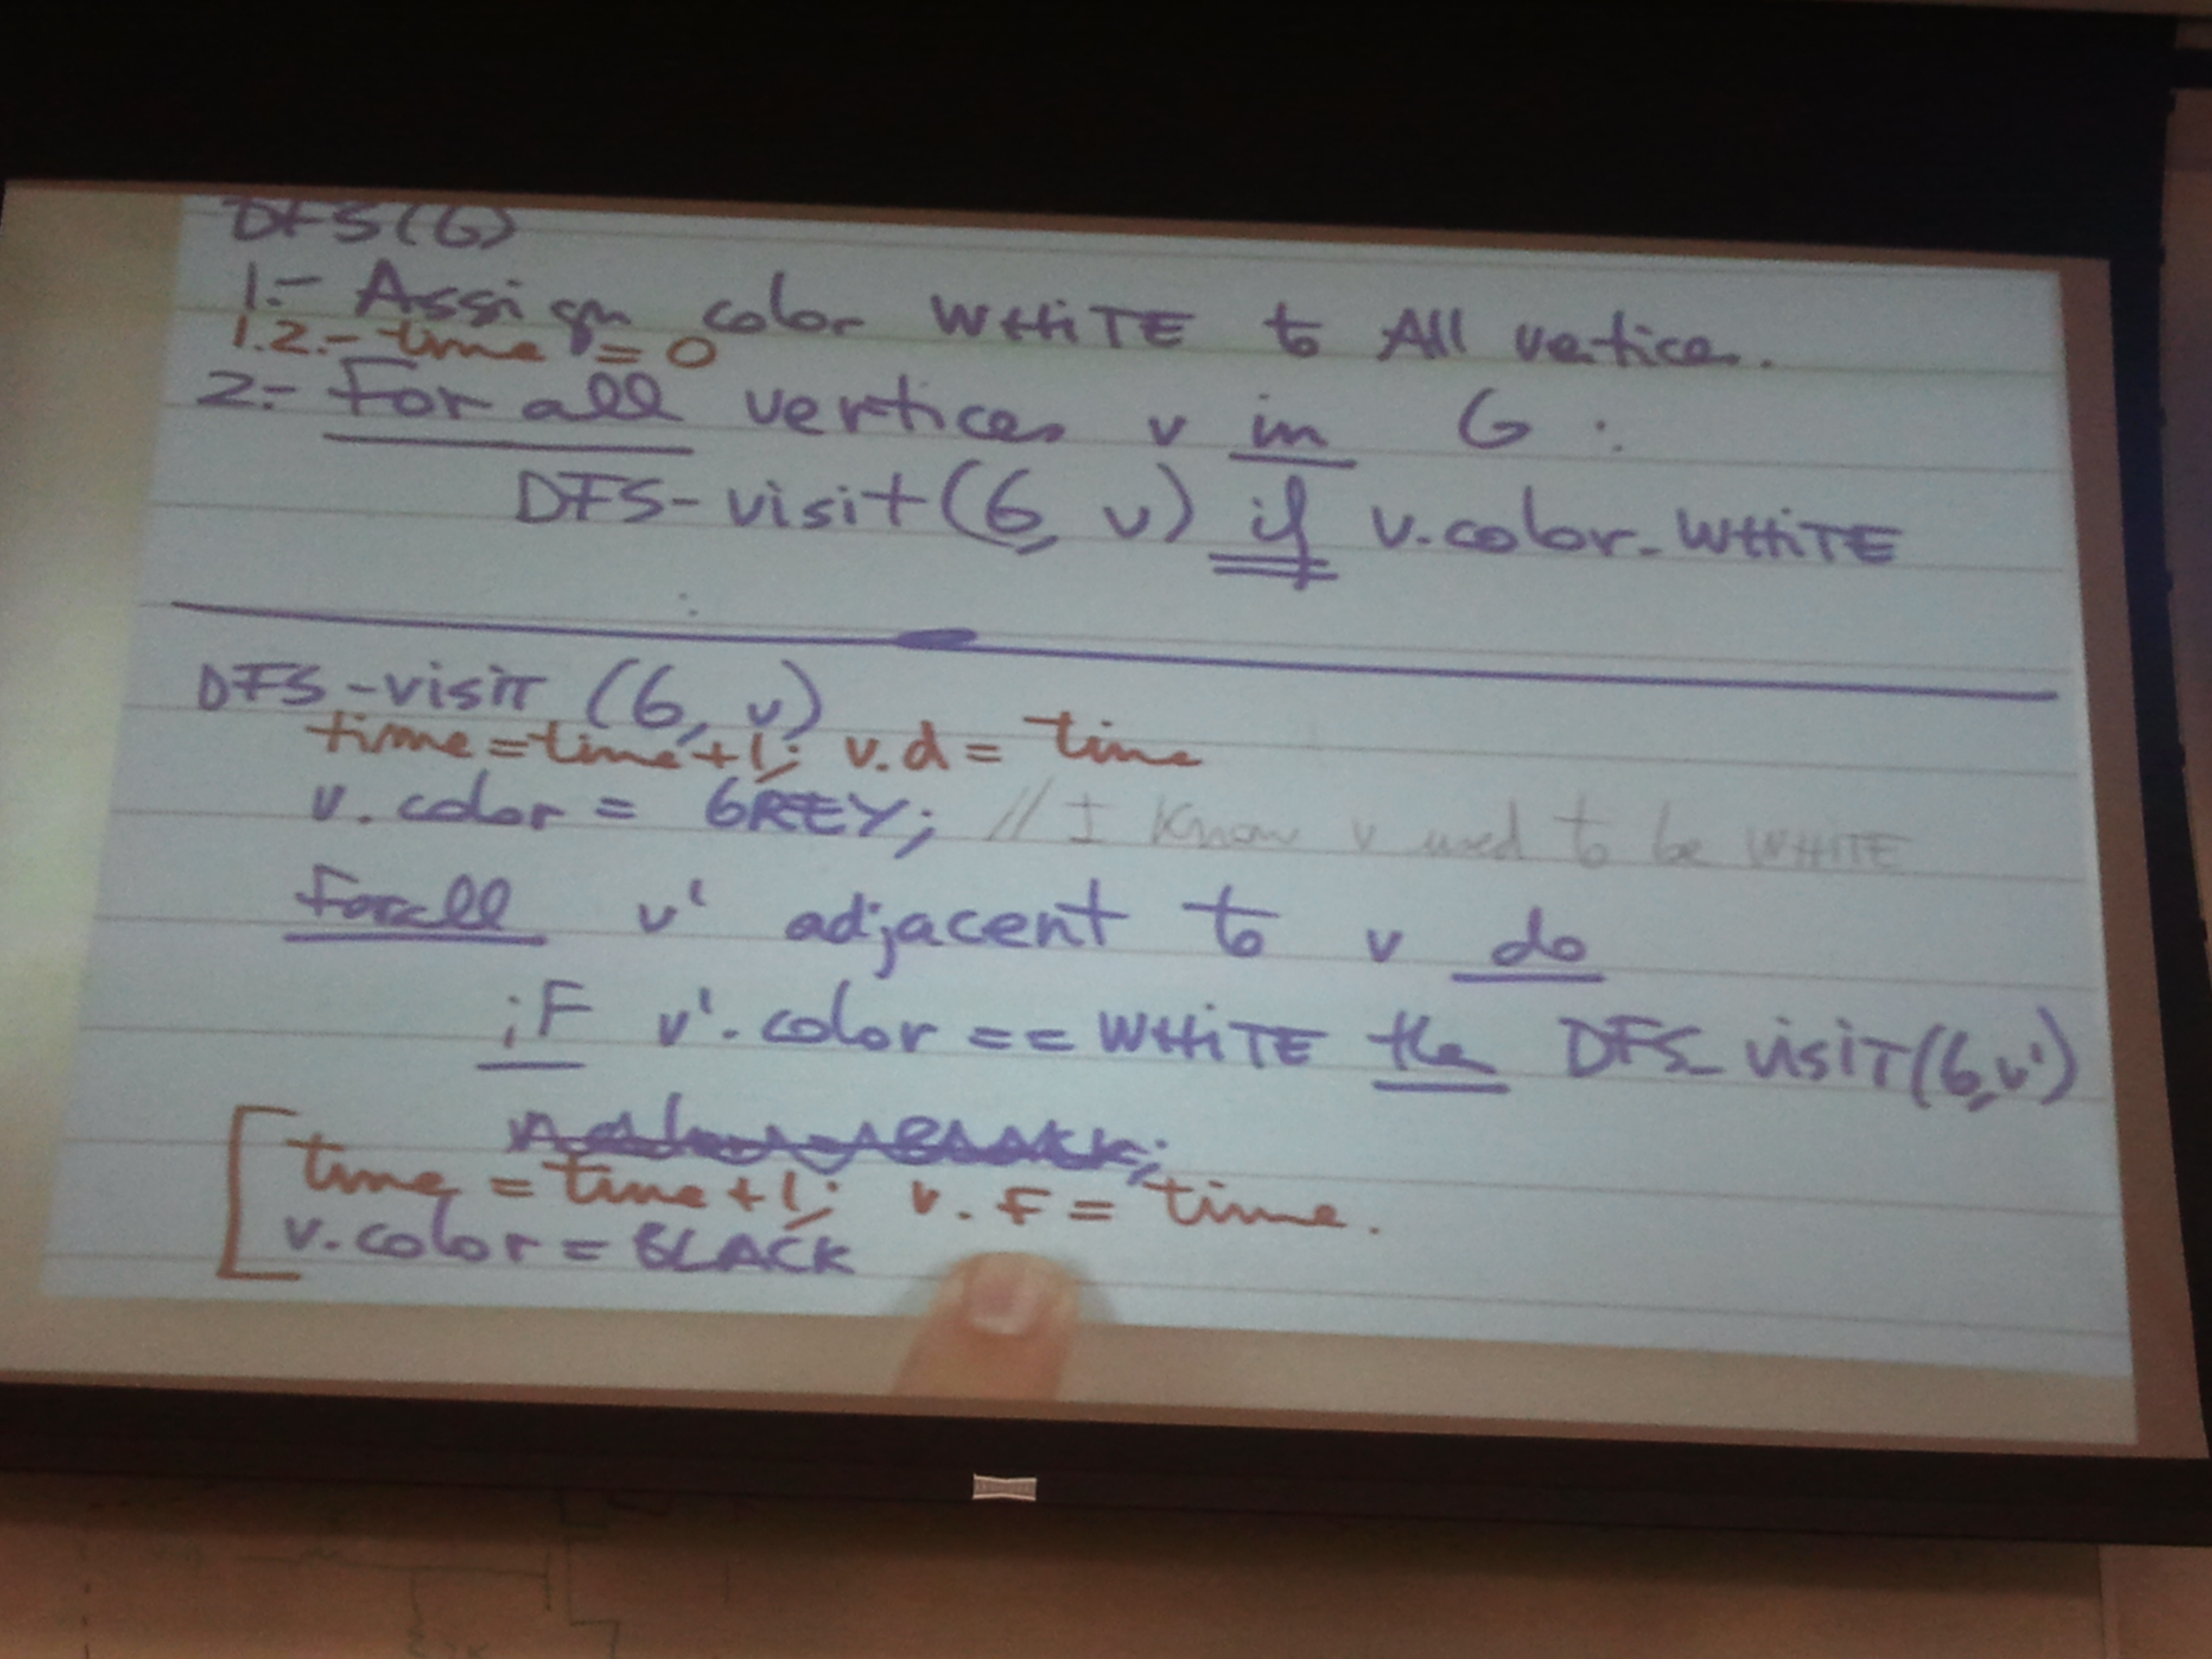 DFS(G)
1.- Assign color WHiTE to All vertices.
1.2.- time = 0
2.- For all vertices v in G :
DFS-visit(G, v) if v.color-WHiTE
DFS-visiT (G, v)
time=time+1; v.d = time
v. color = GREY; // I know v used to be WHiTE
Forall v' adjacent to v do
iF v'.color == WHiTE the DFS_visiT(G,v')
time = time+1; v. F = time.
v.color = BLACK